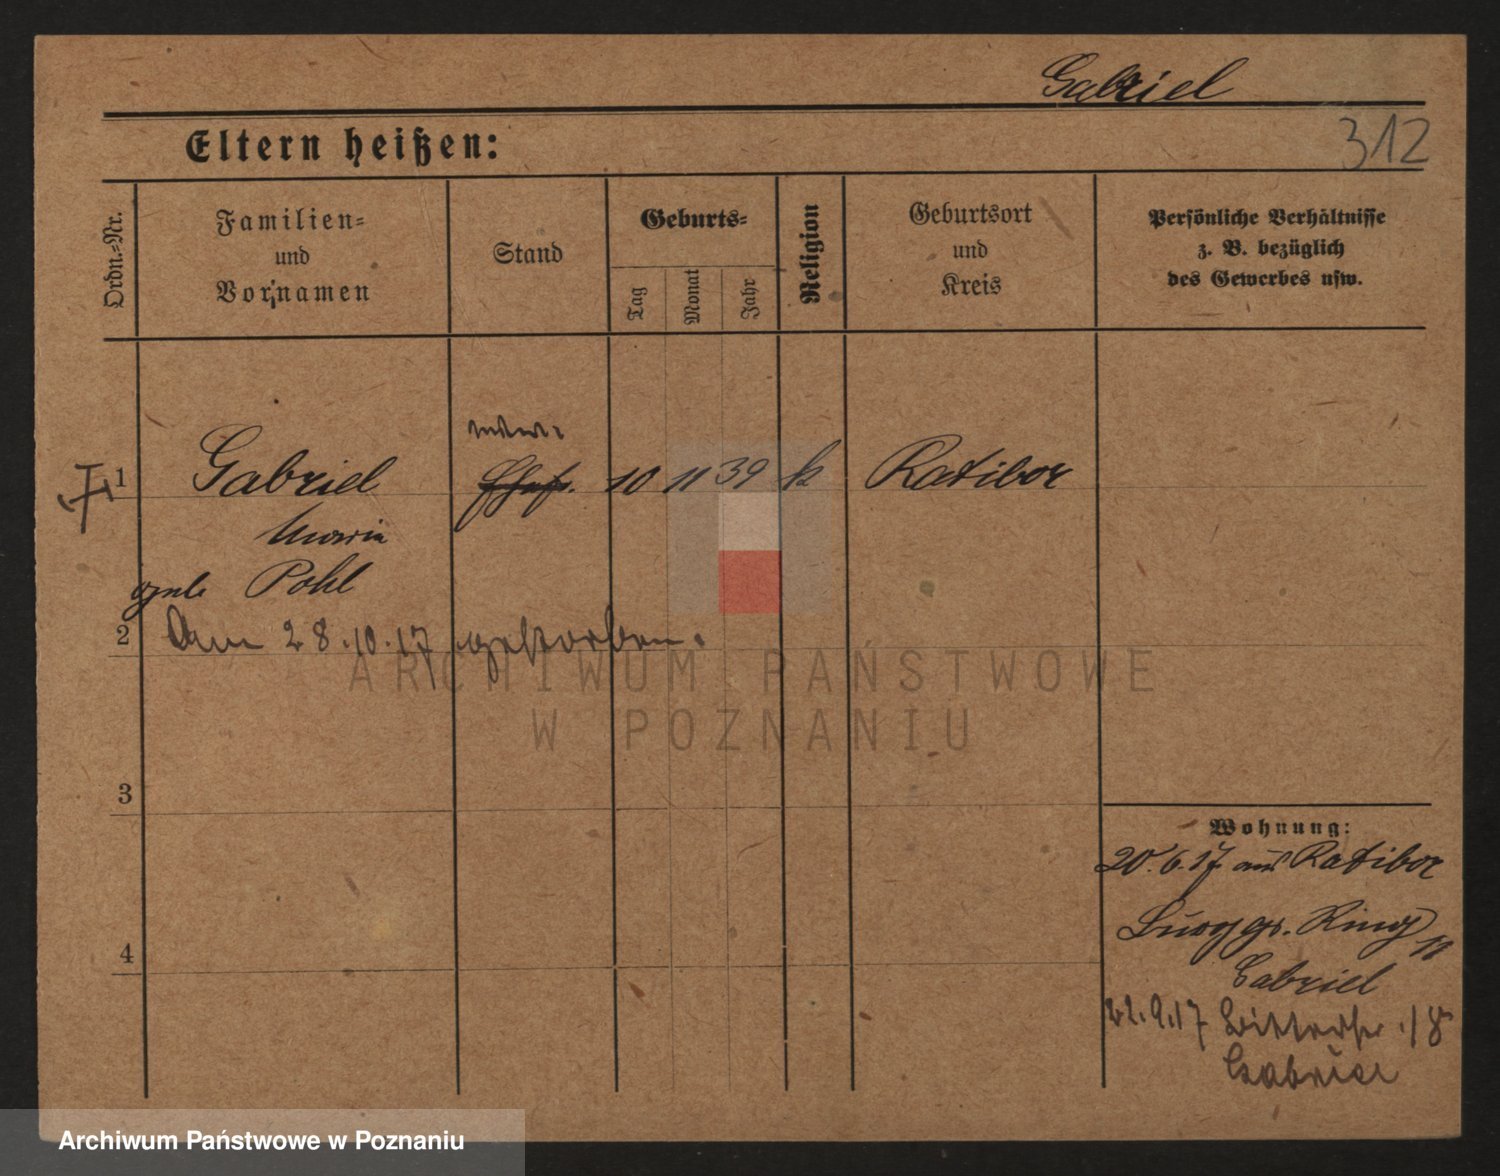 Gabriel
312
Eltern heißen:
Ordn.=Nr.
Familien=
und
Vornamen
Stand
Geburts=
Tag
Monat
Jahr
Religion
Geburtsort
und
Kreis
Persönliche Verhältnisse
z. B. bezüglich
des Gewerbes usw.
1
Gabriel
10 11 39 k Ratibor
Maria
geb. Pohl
2
Am 28.10.17 gestorben.
ARCHIWUM PAŃSTWOWE
W POZNANIU
3
Wohnung:
20.6.17 aus Ratibor
Ring 11
4
Gabriel
22.9.17 18
Gabriel
Archiwum Państwowe w Poznaniu